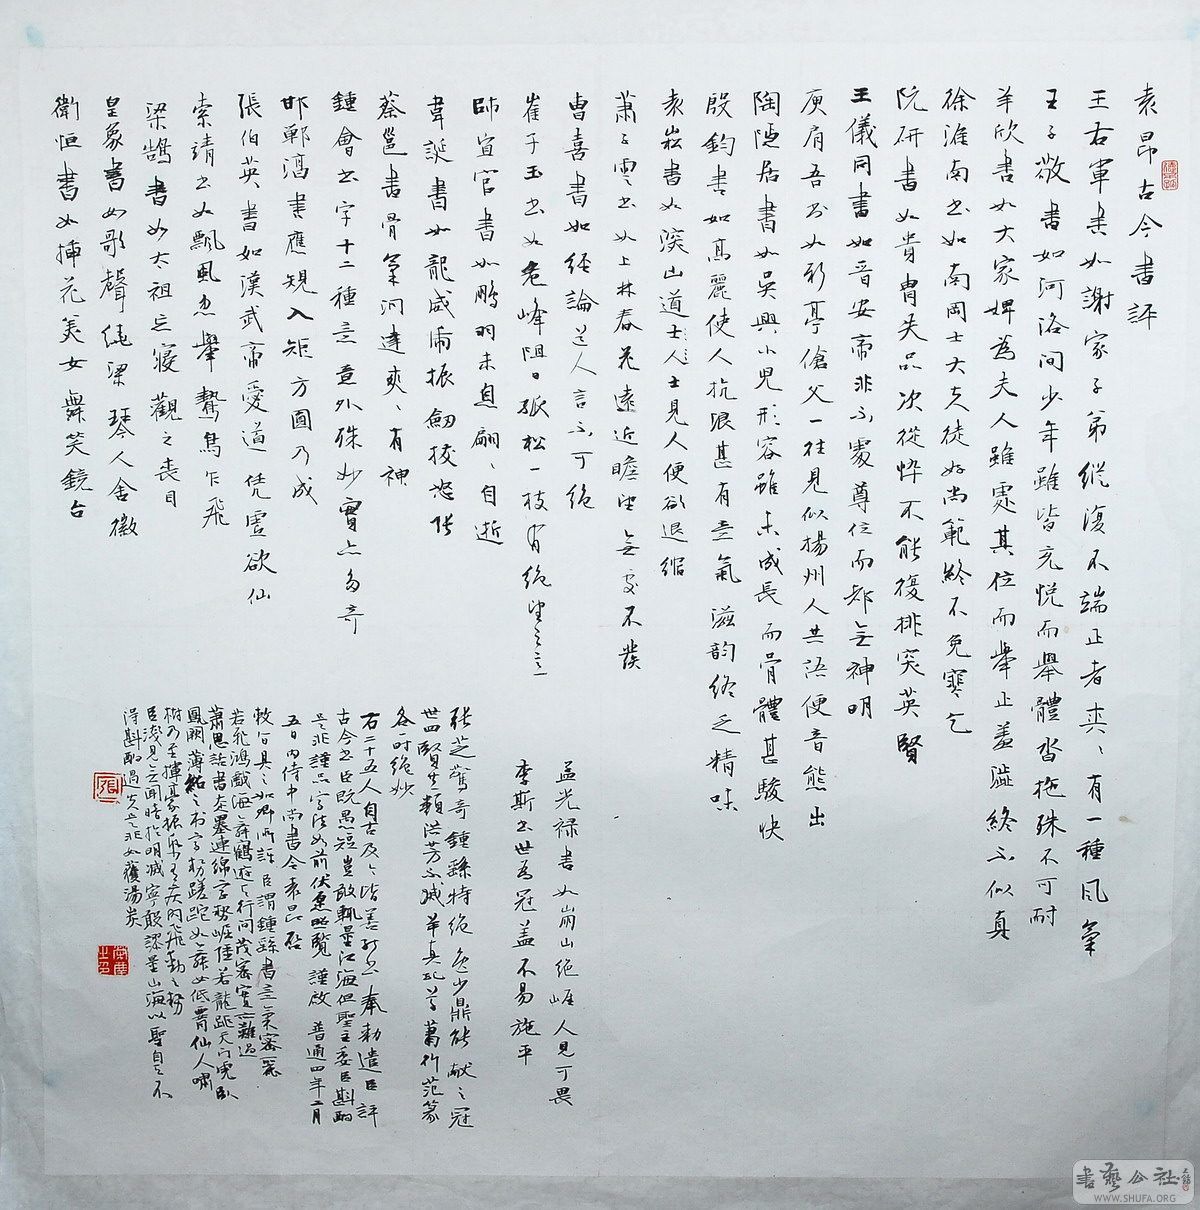 袁昂古今書評
王右軍書如謝家子弟縱復不端正者爽〻有一種風氣
王子敬書如河洛間少年雖皆充悦而舉體沓拖殊不可耐
羊欣書如大家婢為夫人雖處其位而舉止羞澁終不似真
徐淮南書如南岡士大夫徒好尚範終不免寒乞
阮研書如貴胄失品次從悴不能復排突英賢
王儀同書如晉安帝非不處尊位而都無神明
庾肩吾書如新亭傖父一往見似揚州人共語便音態出
陶隱居書如吳興小兒形容雖未成長而骨體甚駿快
殷鈞書如高麗使人抗浪甚有意氣滋韵終乏精味
袁崧書如深山道士人士見人便欲退縮
蕭子雲書如上林春花遠近瞻望無處不發
曹喜書如經論道人言不可絶
崔子玉書如危峰阻日孤松一枝有絶望之意
師宜官書如鵬羽未息翩〻自逝
韋誕書如龍威虎振劒拔怒張
蔡邕書骨氣洞達爽〻有神
鍾會書字十二種意意外殊妙實亦多奇
邯鄲淳書應規入矩方圓乃成
張伯英書如漢武帝愛道凭虛欲仙
索靖書如飄風忽舉鷙鳥乍飛
梁鵠書如太祖忘寢觀之喪目
皇象書如歌聲繞梁琴人舍徽
衛恒書如插花美女舞笑鏡台
孟光禄書如崩山絶崖人見可畏
李斯書世為冠盖不易施平
張芝驚奇鍾繇特絶逸少鼎能献之冠
世四賢共類洪芳不滅羊真孔草蕭行范篆
各一時絶妙
右二十五人自古及今皆善能書奉勅遣臣評
古今書臣既愚短豈敢輒量江海但聖主委臣斟酌
是非謹品字法如前伏願照覽謹啟普通四年二月
五日內侍中尚書令袁昂啟
敕旨具之如卿所評臣謂鍾繇書意氣密麗
若飛鴻戲海舞鶴遊天行間茂密實亦難過
蕭思話書走墨連綿字勢崕陡若龍跳天門虎臥
鳳闕薄紹之書字勢蹉跎如舞女低腰仙人嘯
樹乃至揮毫振紙有疾閃飛動之勢
臣淺見無聞暗於明滅寧敢謬量山海以聖旨不
得斟酌過失是非如獲湯炭
書藝公社
WWW.SHUFA.ORG